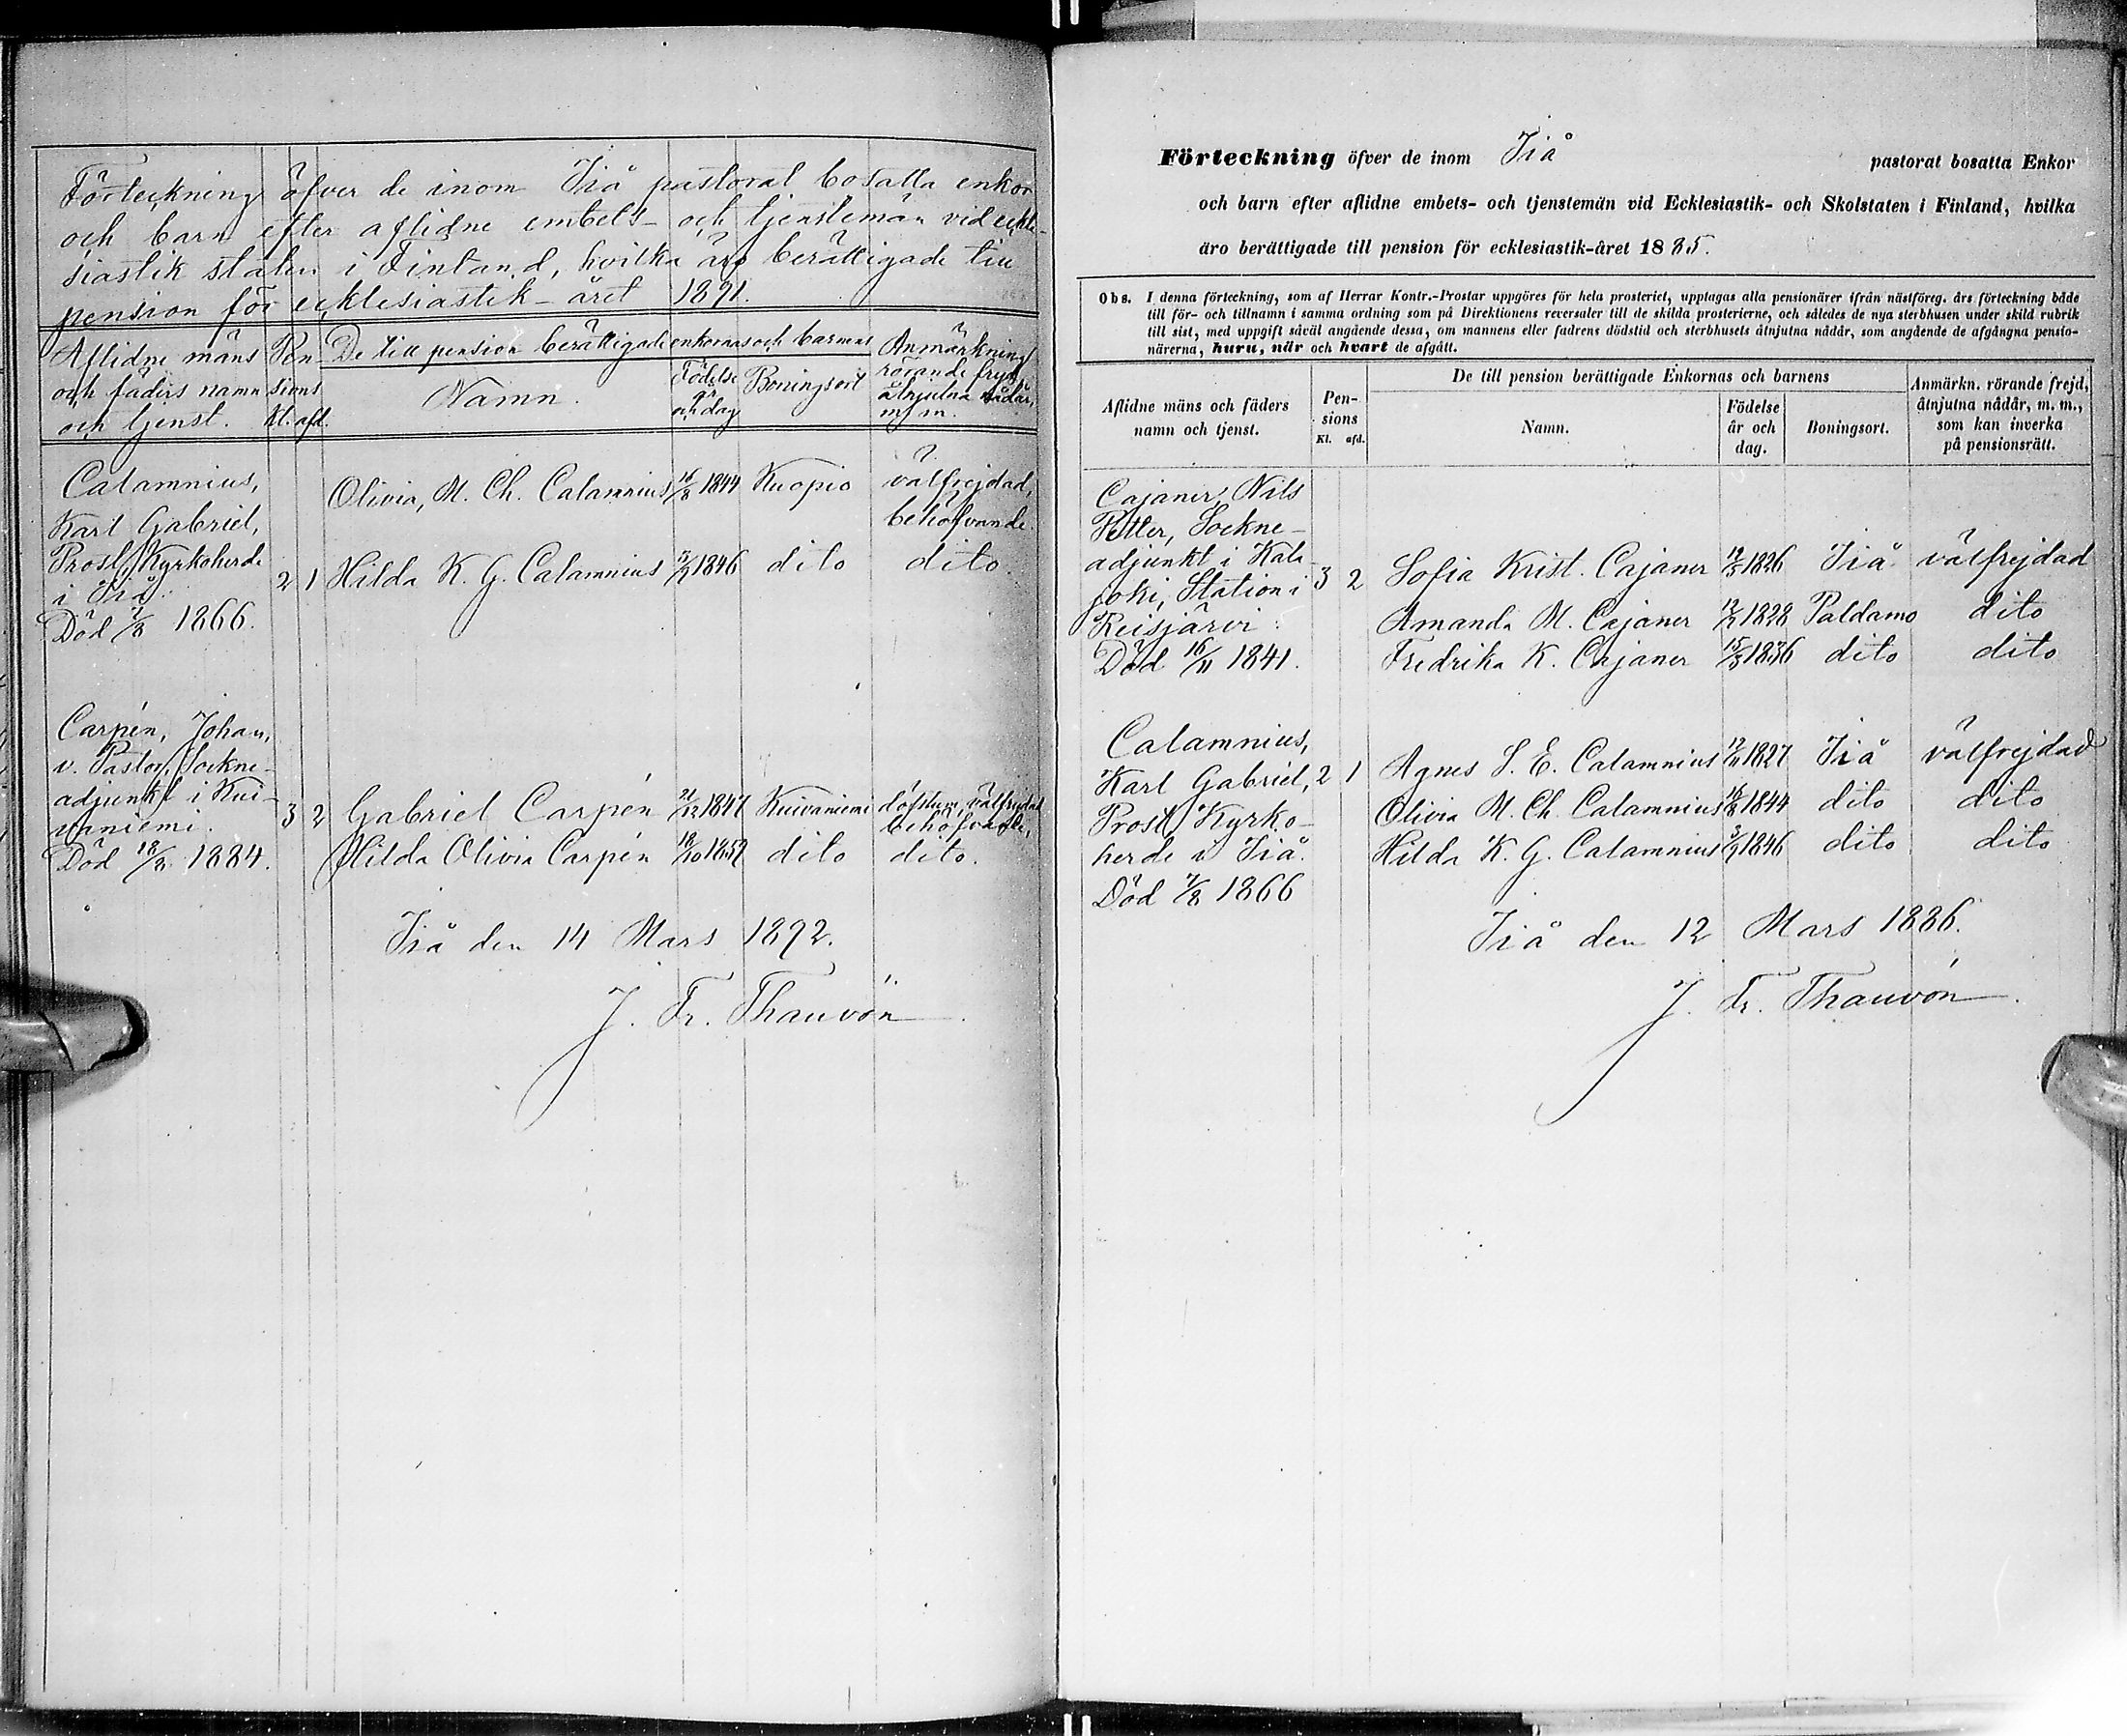 Förteckning öfver de inom Iiå pastorat bosatta enkor
och barn efter aflidne embets- och tjenstemän vid eckle-
siastik staten i Finland, hvilka äro berättigade till
pension för ecklesiastik-året 1891.
Aflidne mäns
och fäders namn
och tjenst.
Pen-
sions
Kl. afd.
De till pension berättigade enkornas och barnens
Namn.
Födelse
år
och dag
Boningsort
Anmärkning
rörande frejd,
åtnjutna nådår,
m. m.
Calamnius,
Karl Gabriel,
Prost, Kyrkoherde
i Iiå.
Död 7/8 1866.
2 1
Olivia, M. Ch. Calamnius 16/8 1844 Kuopio välfrejdad,
behöfvande.
Hilda K. G. Calamnius 5/9 1846 dito dito.
Carpén, Johan,
v. Pastor, Sockne-
adjunkt i Kui-
vaniemi.
Död 18/8 1884.
3 2
Gabriel Carpén 21/12 1847 Kuivaniemi döfstum, välfrejdad
behöfvande,
Hilda Olivia Carpén 18/10 1859 dito dito.
Iiå den 14 Mars 1892.
J. Fr. Thauvón
Förteckning öfver de inom Iiå pastorat bosatta Enkor
och barn efter aflidne embets- och tjenstemän vid Ecklesiastik- och Skolstaten i Finland, hvilka
äro berättigade till pension för ecklesiastik-året 1885.
Obs. I denna förteckning, som af Herrar Kontr.-Prostar uppgöres för hela prosteriet, upptagas alla pensionärer ifrån nästföreg. års förteckning både
till för- och tillnamn i samma ordning som på Direktionens reversaler till de skilda prosterierne, och således de nya sterbhusen under skild rubrik
till sist, med uppgift såväl angående dessa, om mannens eller fadrens dödstid och sterbhusets åtnjutna nådår, som angående de afgångna pensio-
närerna, huru, när och hvart de afgått.
Aflidne mäns och fäders
namn och tjenst.
Pen-
sions
Kl. afd.
De till pension berättigade Enkornas och barnens
Namn.
Födelse
år och
dag.
Boningsort.
Anmärkn. rörande frejd,
åtnjutna nådår, m. m.,
som kan inverka
på pensionsrätt.
Cajaner, Nils
Petter, Sockne-
adjunkt i Kala-
joki, Station i
Reisjärvi.
Död 16/11 1841.
3 2
Sofia Krist. Cajaner 12/5 1826 Iiå välfrejdad
Amanda M. Cajaner 12/7 1828 Paldamo dito
Fredrika K. Cajaner 15/3 1836 dito dito
Calamnius,
Karl Gabriel,
Prost, Kyrko-
herde i Iiå.
Död 7/8 1866
2 1
Agnes S. E. Calamnius 12/11 1827 Iiå välfrejdad
Olivia M. Ch. Calamnius 16/8 1844 dito dito
Hilda K. G. Calamnius 5/9 1846 dito dito
Iiå den 12 Mars 1886.
J. Fr. Thauvón